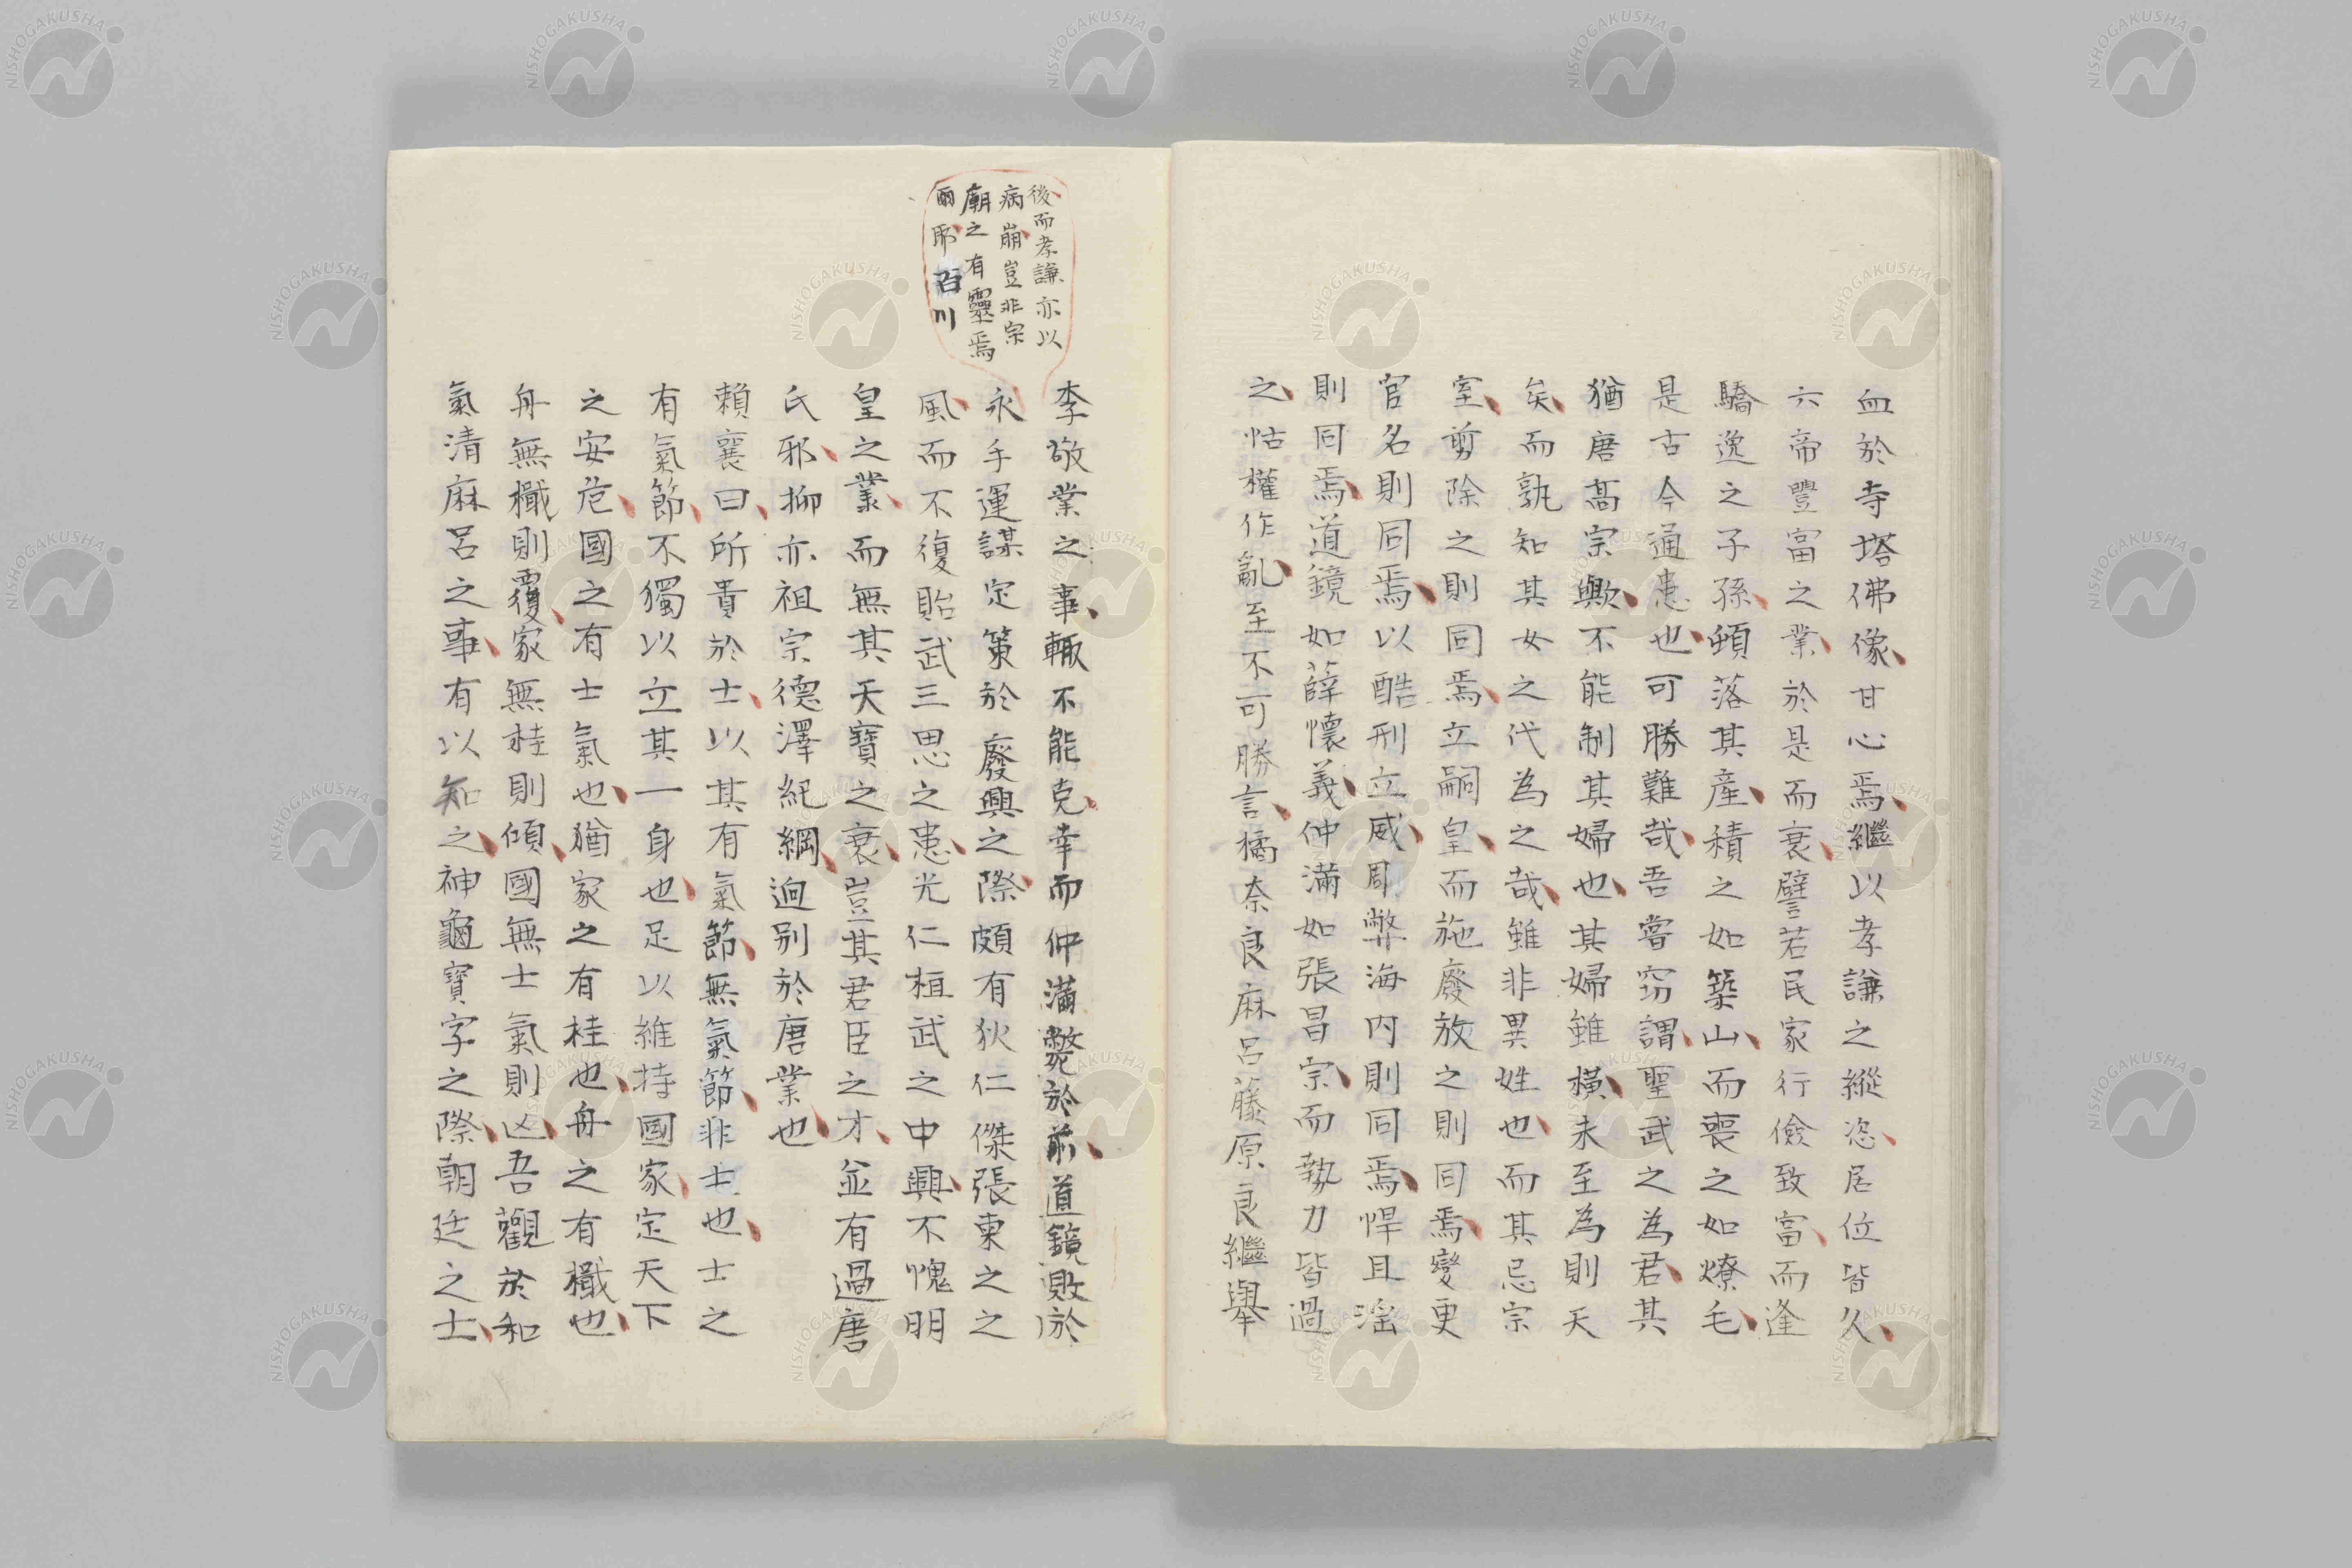 血於寺塔佛像甘心焉繼以孝謙之縱恣居位皆久
六帝豐富之業於是而衰譬若民家行儉致富而逢
驕逸之子孫頓落其產積之如築山而喪之如燎毛
是古今通患也可勝難哉吾嘗窃謂聖武之為君其
猶唐高宗歟不能制其婦也其婦雖橫未至為則天
矣而孰知其女之代為之哉雖非異姓也而其忌宗
室剪除之則同焉立嗣皇而施廢放之則同焉變更
官名則同焉以酷刑立威凋弊海內則同焉悍且淫
則同焉道鏡如薛懷義仲滿如張昌宗而勢力皆過
之怙權作亂至不可勝言橘奈良麻呂藤原良繼舉
後而孝謙亦以
病崩豈非宗
廟之有靈焉
爾耶否川
李敬業之事輙不能克幸而仲滿斃於前道鏡敗於
永手運謀定策於廢興之際頗有狄仁傑張柬之之
風而不復貽武三思之患光仁桓武之中興不愧明
皇之業而無其天寶之衰豈其君臣之才並有過唐
氏邪抑亦祖宗德澤紀綱迥別於唐業也
賴襄曰所貴於士以其有氣節無氣節非士也士之
有氣節不獨以立其一身也足以維持國家定天下
之安危國之有士氣也猶家之有柱也舟之有檝也
舟無檝則覆家無柱則傾國無士氣則凶吾觀於和
氣清麻呂之事有以知之神龜寶字之際朝廷之士